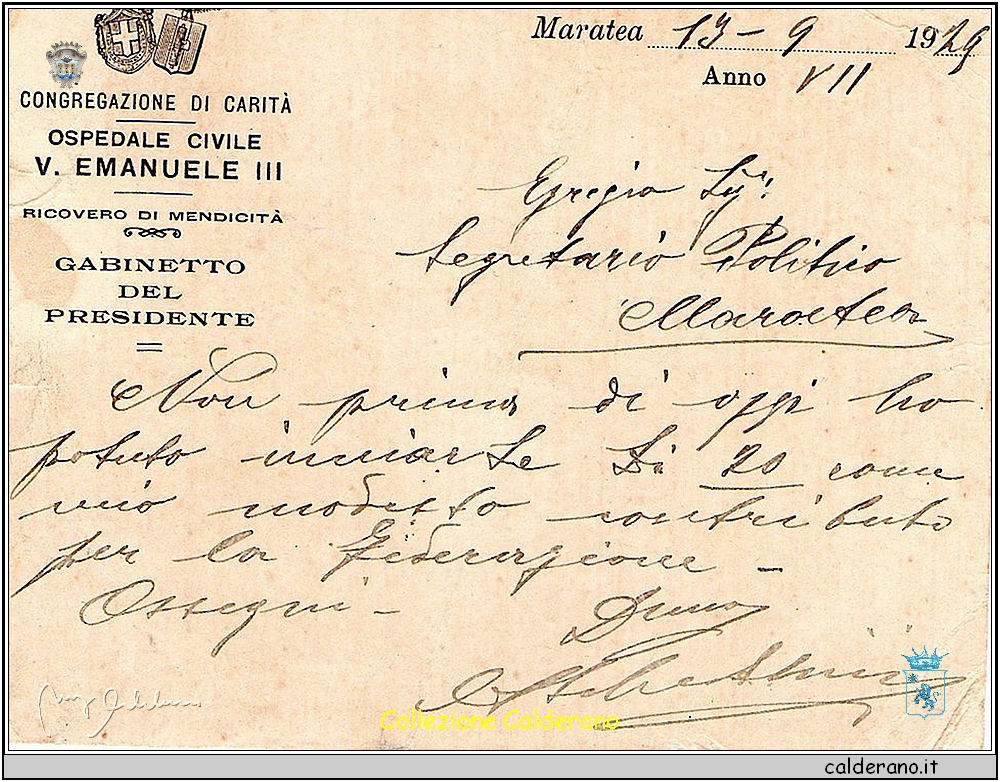 Maratea 13 - 9 1929
Anno VII
CONGREGAZIONE DI CARITÀ
OSPEDALE CIVILE
V. EMANUELE III
RICOVERO DI MENDICITÀ
GABINETTO
DEL
PRESIDENTE
Egregio Sig.
Segretario Politico
Maratea
Non prima di oggi ho
potuto inviarLe Li 20 come
mio modesto contributo
per la Federazione -
Ossequi -
Collezione Calderano
calderano.it